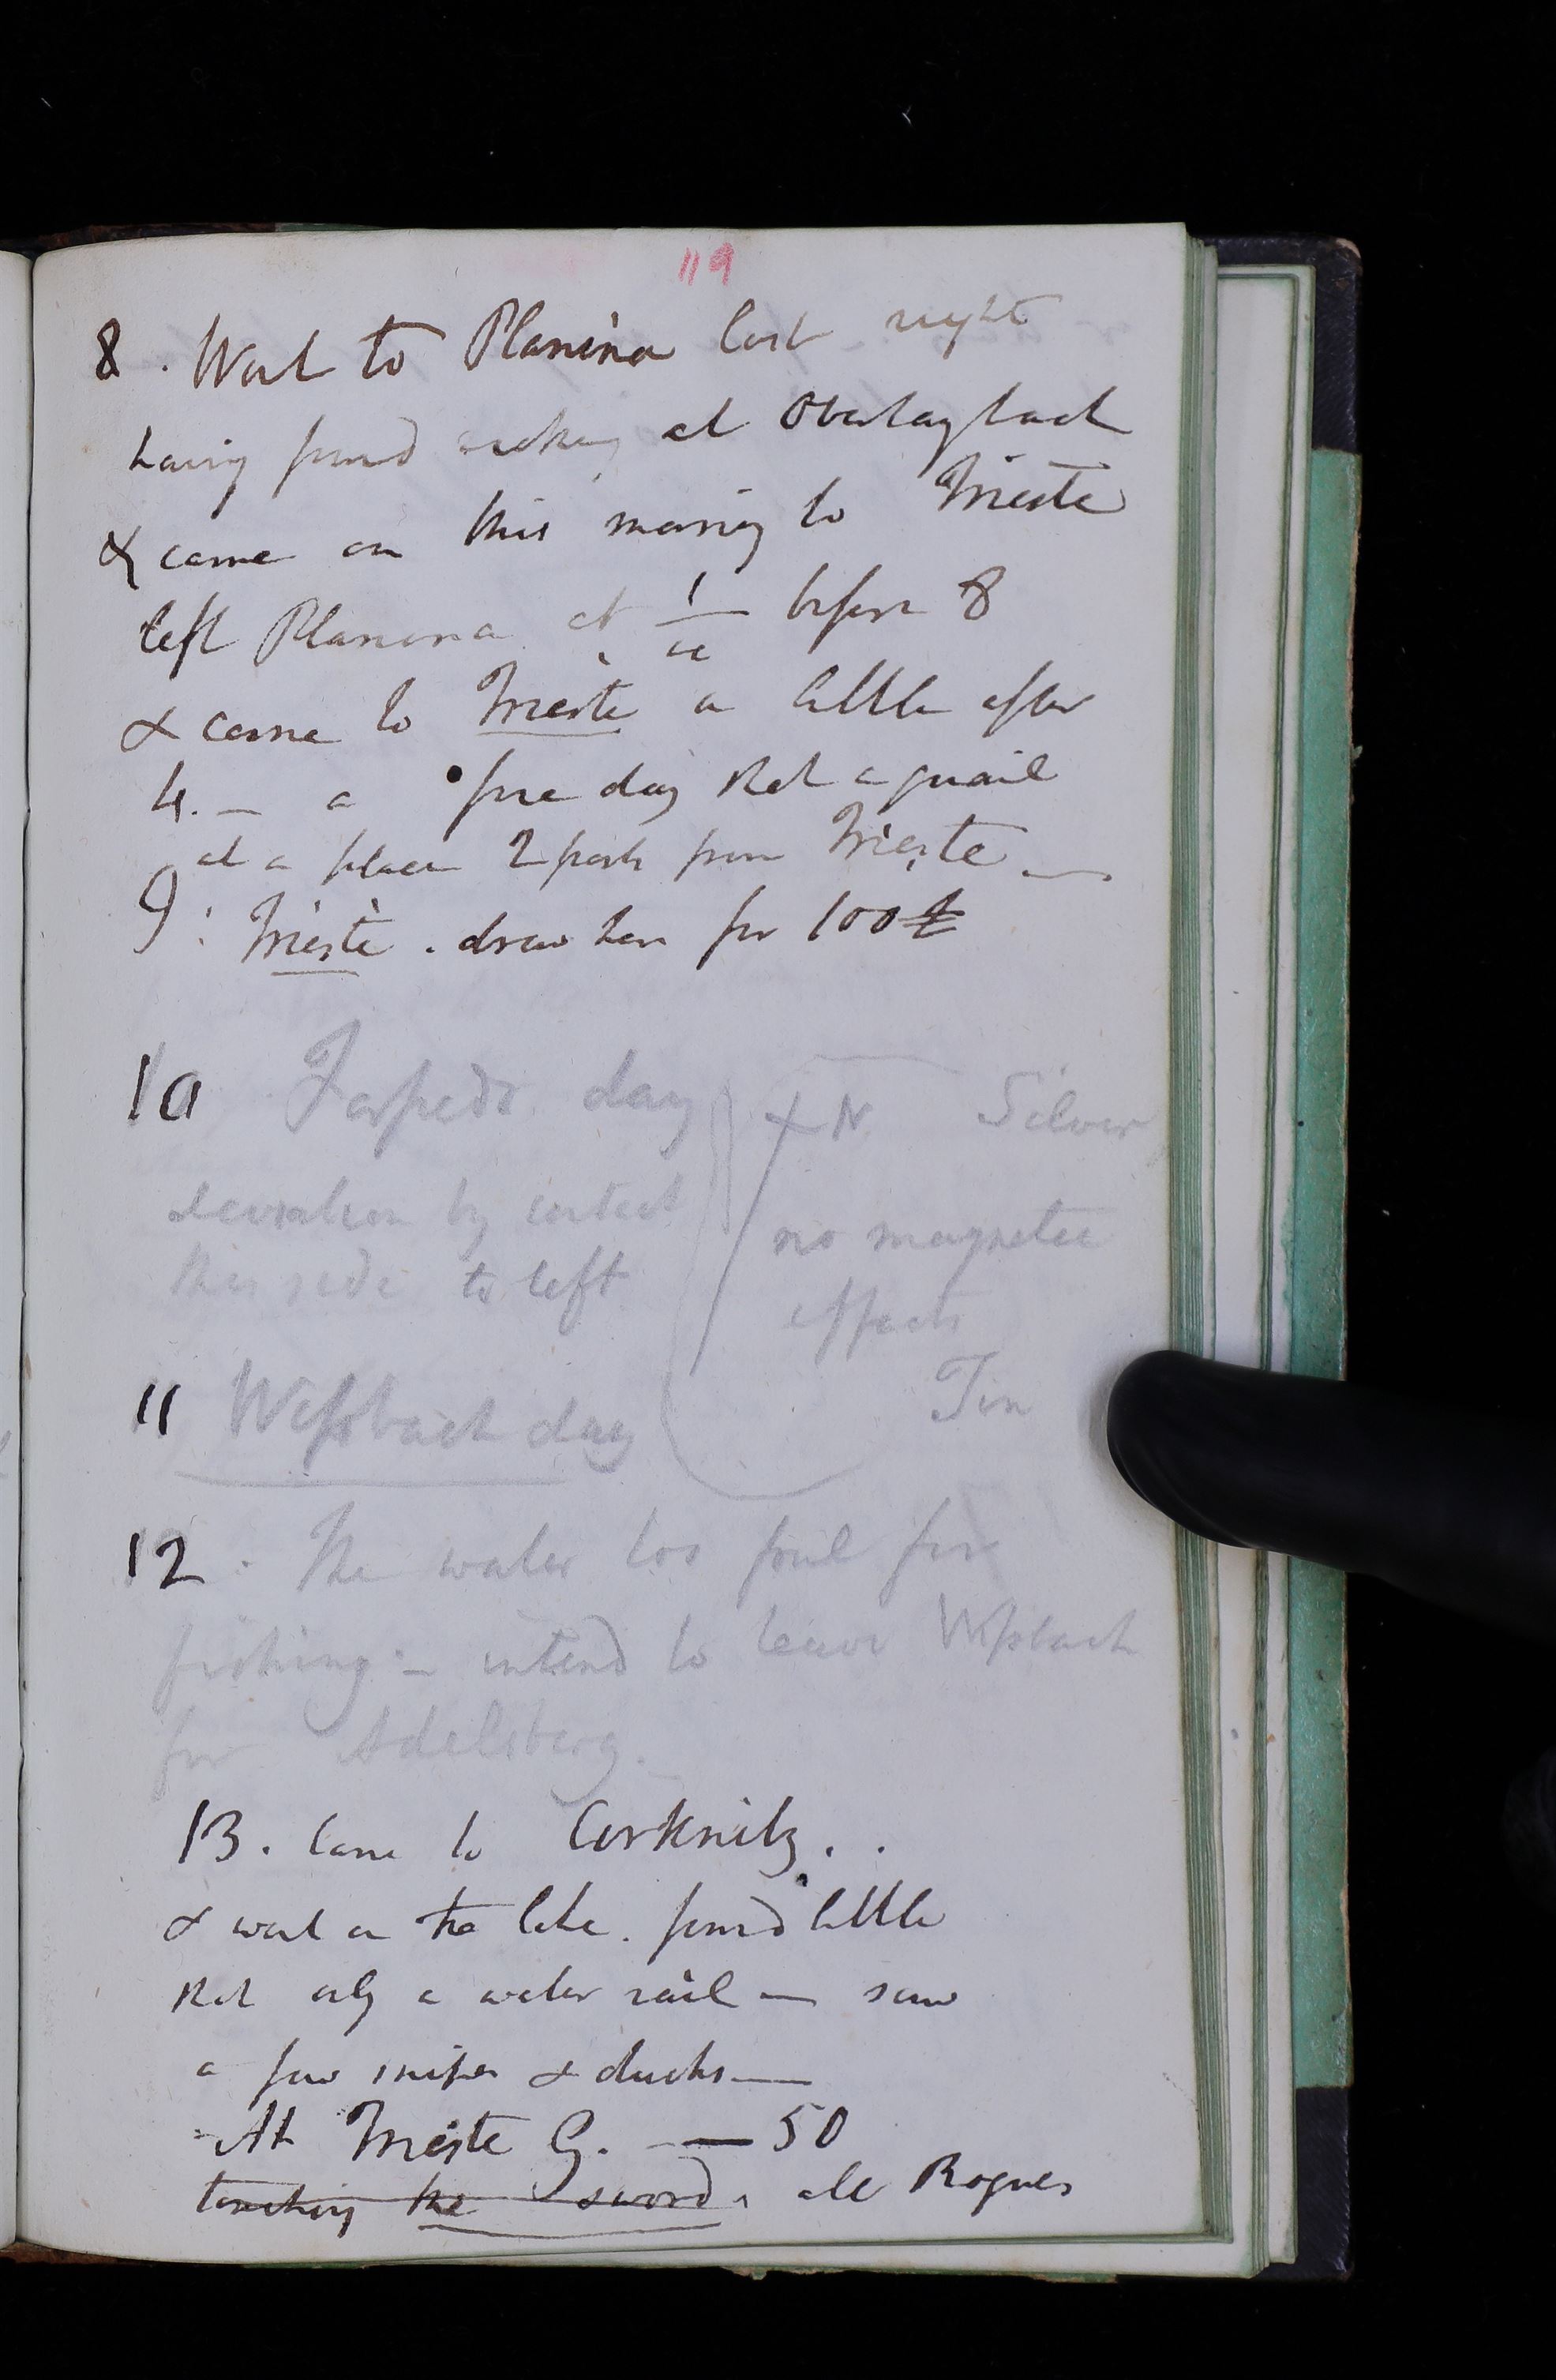 119
8. Went to Planina last night
having found nothing at Oberlaybach
& came on this morning to Trieste
left Planina at 1/4 before 8
& came to Trieste a little after
4. – a fine day shot a quail
at a place 2 posts from Trieste –
9: Trieste. drew here for 100£
10 Torpedo day
+ N Silver
deviation by contact
this side to left
no magnetic
effects
Tin
11 Wipbach day
12. The water too foul for
fishing – intend to leave Wipbach
for Adelsberg. –
13. Came to Cirknitz. .
& went on the lake. found little
shot only a water rail – saw
a few snipes & ducks –
At Trieste G. — 50
touching the sword. all Rogues